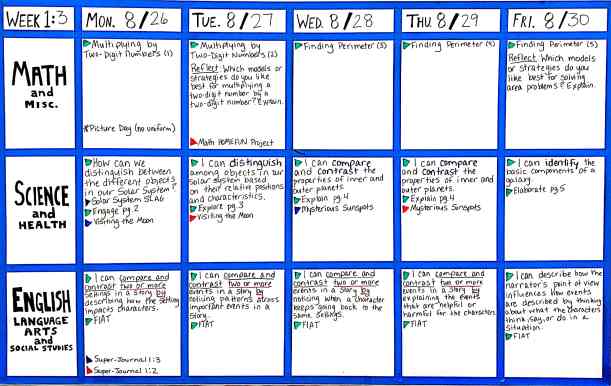 WEEK 1:3
MON. 8/26
TUE. 8/27
WED. 8/28
THU. 8/29
FRI. 8/30
MATH
and
MISC.
Multiplying by
Two-Digit Numbers (1)
*Picture Day (no uniform)
Multiplying by
Two-Digit Numbers (2)
Reflect: Which models or
strategies do you like
best for multiplying a
two-digit number by a
two-digit number? Explain.
Math HOMEFUN Project
Finding Perimeter (3)
Finding Perimeter (4)
Finding Perimeter (5)
Reflect: Which models
or strategies do you
like best for solving
area problems? Explain.
SCIENCE
and
HEALTH
How can we
distinguish between
the different objects
in our Solar System?
Solar System SLA6
Engage pg. 2
Visiting the Moon
I can distinguish
among objects in our
Solar System based
on their relative positions
and characteristics.
Explore pg. 3
Visiting the Moon
I can compare
and contrast the
properties of inner and
outer planets.
Explain pg. 4
Mysterious Sunspots
I can compare
and contrast the
properties of inner and
outer planets.
Explain pg. 4
Mysterious Sunspots
I can identify the
basic components of a
galaxy.
Elaborate pg. 5
ENGLISH
LANGUAGE
ARTS
and
SOCIAL STUDIES
I can compare and
contrast two or more
settings in a story by
describing how the setting
impacts characters.
FIAT
Super-Journal 1:3
Super-Journal 1:2
I can compare and
contrast two or more
events in a story by
noticing patterns across
important events in a
story.
FIAT
I can compare and
contrast two or more
events in a story by
noticing when a character
keeps going back to the
same settings.
FIAT
I can compare and
contrast two or more
events in a story by
explaining the events
that are helpful or
harmful for the characters.
FIAT
I can describe how the
narrator's point of view
influences how events
are described by thinking
about what the characters
think, say, or do in a
situation.
FIAT